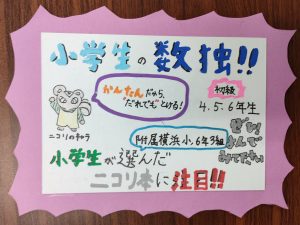 小学生の数独!!
かんたんだから、
だれでもとける!
初級
4.5.6年生
ニコリのキャラ
附属横浜小6年3組
ぜひ
よんで
みてたい
小学生が選んだ
ニコリ本に注目!!